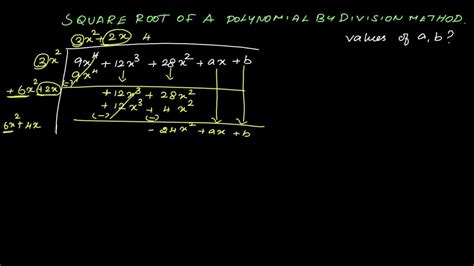 SQUARE ROOT OF A POLYNOMIAL BY DIVISION METHOD.
values of a, b?
3x² + 2x 4
3x² 9x⁴ + 12x³ + 28x² + ax + b
(-) 9x⁴
+ 6x² + 2x + 12x³ + 28x²
+ 12x³ + 4x²
(-) (-)
6x² + 4x - 24x² + ax + b